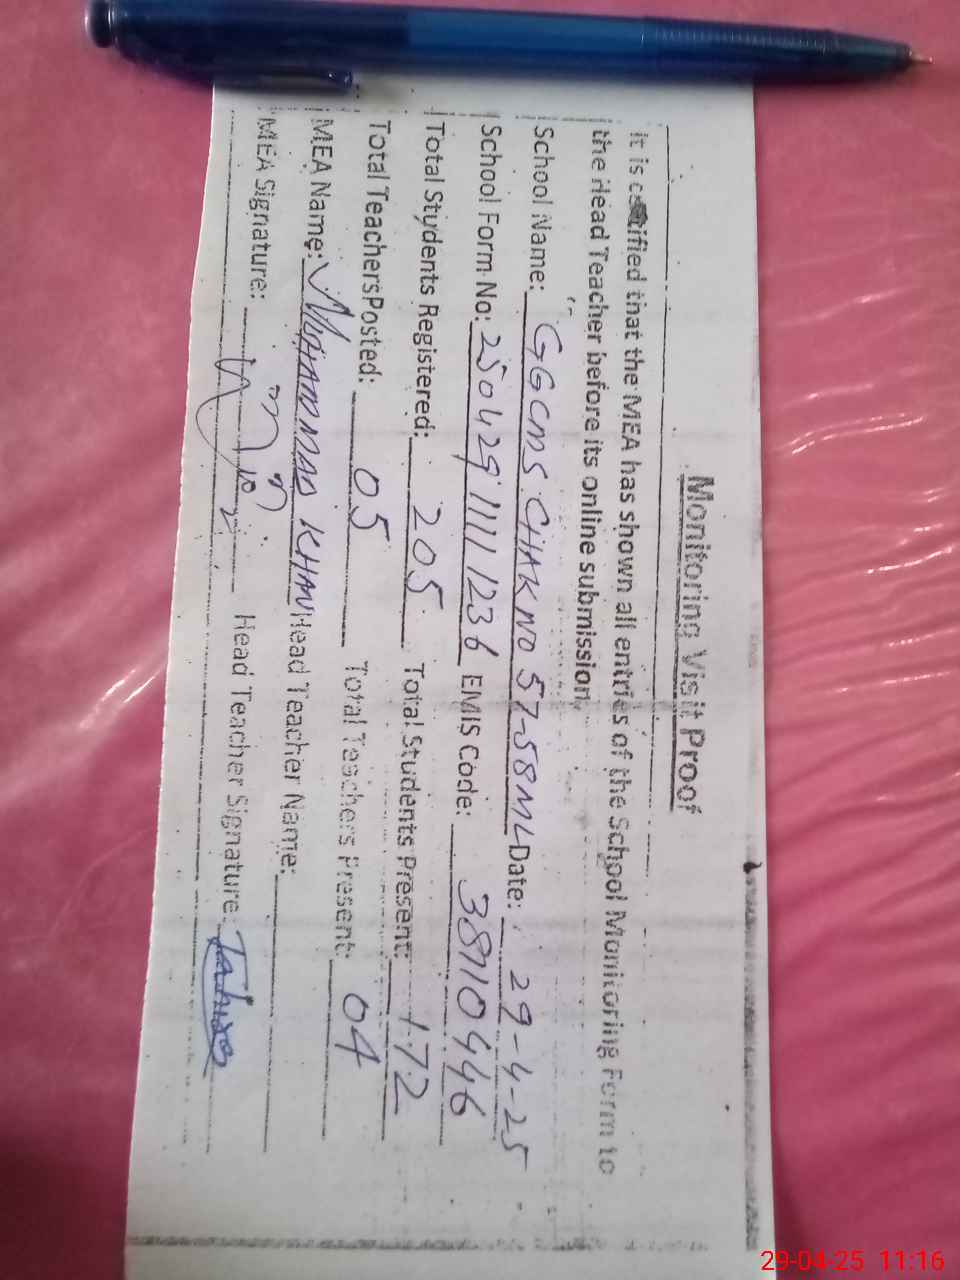 Monitoring Visit Proof
It is certified that the MEA has shown all entries of the School Monitoring Form to
the Head Teacher before its online submission.
School Name: GGCMS CHAK NO 57-58ML Date: 29-4-25
School Form No: 25042911111236 EMIS Code: 38110446
Total Stydents Registered: 205 Total Students Present: 172
Total TeachersPosted: 05 Total Teachers Present: 04
MEA Name: MUHAMMAD KHAN Head Teacher Name:
MEA Signature: Head Teacher Signature:
29-04-25 11:16